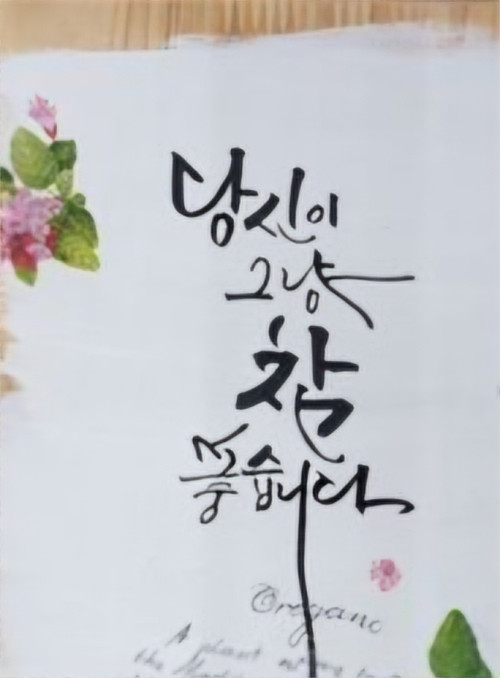 당신이
그냥
참
좋습니다
Oregano
A plant
the